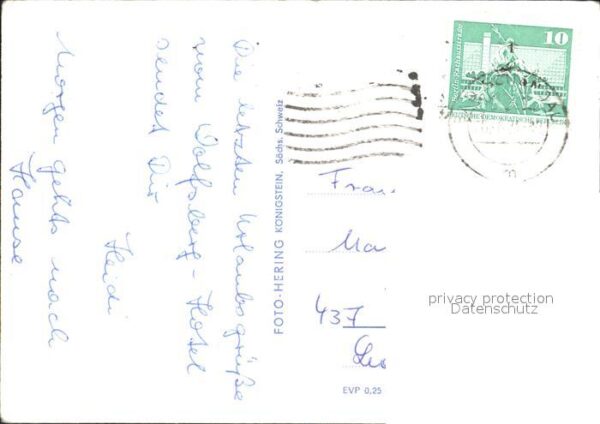 Die letzten Urlaubsgrüße
vom Wolfsberg-Hotel
sendet Dir
Heidi
Morgen gehts nach
Hause
FOTO-HERING KÖNIGSTEIN, Sächs. Schweiz
10
Frau
Ma
437
EVP 0,25
privacy protection
Datenschutz